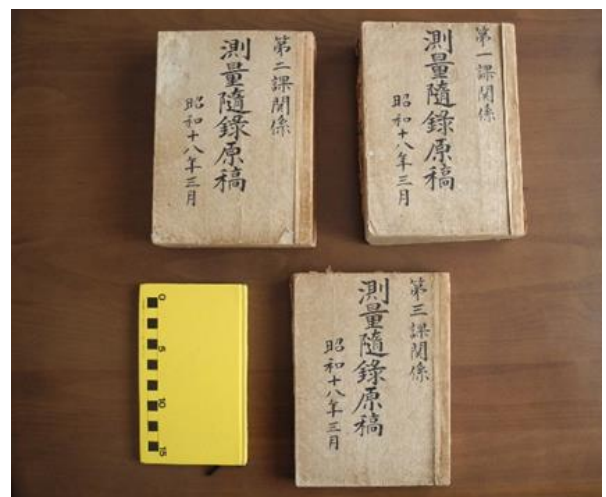 第一課関係
測量随録原稿
昭和十八年三月
第二課関係
測量随録原稿
昭和十八年三月
第三課関係
測量随録原稿
昭和十八年三月
0
5
10
15